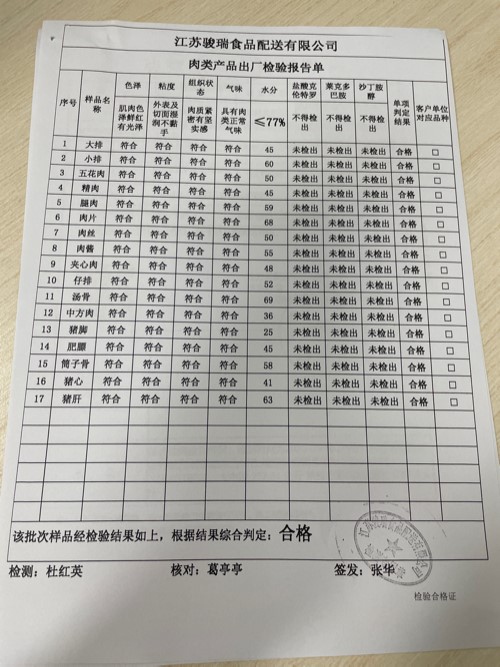 江苏骏瑞食品配送有限公司
肉类产品出厂检验报告单
序号 样品名称 色泽 粘度 组织状态 气味 水分 盐酸克伦特罗 莱克多巴胺 沙丁胺醇 单项判定结果 客户单位对应品种
肌肉色泽鲜红有光泽 外表及切面湿润不黏手 肉质紧密有坚实感 具有肉类正常气味 ≤77% 不得检出 不得检出 不得检出
1 大排 符合 符合 符合 符合 45 未检出 未检出 未检出 合格 □
2 小排 符合 符合 符合 符合 60 未检出 未检出 未检出 合格 □
3 五花肉 符合 符合 符合 符合 50 未检出 未检出 未检出 合格 □
4 精肉 符合 符合 符合 符合 45 未检出 未检出 未检出 合格 □
5 腿肉 符合 符合 符合 符合 59 未检出 未检出 未检出 合格 □
6 肉片 符合 符合 符合 符合 68 未检出 未检出 未检出 合格 □
7 肉丝 符合 符合 符合 符合 50 未检出 未检出 未检出 合格 □
8 肉酱 符合 符合 符合 符合 55 未检出 未检出 未检出 合格 □
9 夹心肉 符合 符合 符合 符合 48 未检出 未检出 未检出 合格 □
10 仔排 符合 符合 符合 符合 52 未检出 未检出 未检出 合格 □
11 汤骨 符合 符合 符合 符合 69 未检出 未检出 未检出 合格 □
12 中方肉 符合 符合 符合 符合 36 未检出 未检出 未检出 合格 □
13 猪脚 符合 符合 符合 符合 25 未检出 未检出 未检出 合格 □
14 肥膘 符合 符合 符合 符合 45 未检出 未检出 未检出 合格 □
15 筒子骨 符合 符合 符合 符合 58 未检出 未检出 未检出 合格 □
16 猪心 符合 符合 符合 符合 41 未检出 未检出 未检出 合格 □
17 猪肝 符合 符合 符合 符合 63 未检出 未检出 未检出 合格 □
该批次样品经检验结果如上，根据结果综合判定：合格
检测：杜红英 核对：葛亭亭 签发：张华
检验合格证